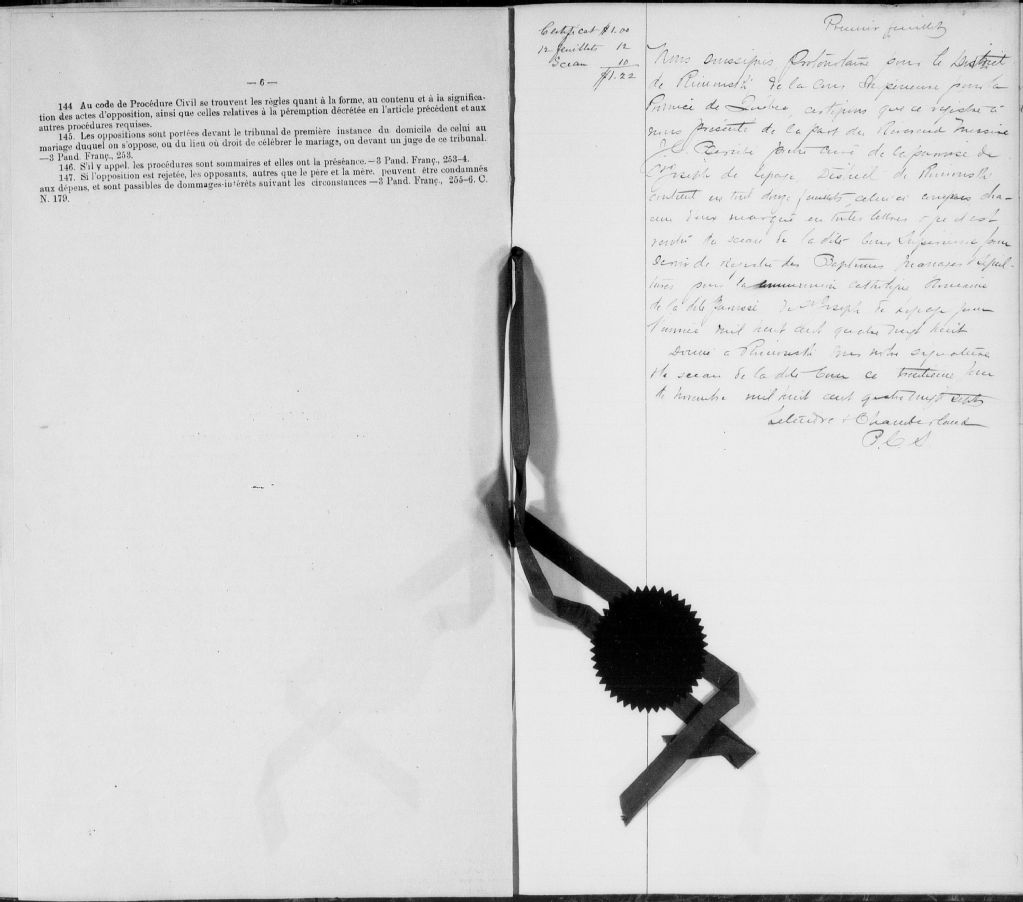 — 6 —
144 Au code de Procédure Civil se trouvent les règles quant à la forme, au contenu et à la significa-
tion des actes d'opposition, ainsi que celles relatives à la péremption décrétée en l'article précédent et aux
autres procédures requises.
145. Les oppositions sont portées devant le tribunal de première instance du domicile de celui au
mariage duquel on s'oppose, ou du lieu où droit de célébrer le mariage, ou devant un juge de ce tribunal.
—3 Pand. Franç., 253.
146. S'il y appel, les procédures sont sommaires et elles ont la préséance.—3 Pand. Franç., 253-4.
147. Si l'opposition est rejetée, les opposants, autres que le père et la mère, peuvent être condamnés
aux dépens, et sont passibles de dommages-intérêts suivant les circonstances—3 Pand. Franç., 255-6. C.
N. 179.
Certificat $1.00
12 feuillets 12
Sceau 10
$1.22
Premier feuillet
Nous soussignés Protonotaire pour le District
de Rimouski de la Cour Supérieure pour la
Province de Québec, certifions que ce registre à
nous présenté de la part du Révérend Messire
curé de la paroisse de
St Joseph de Lepage District de Rimouski
contient en tout douze feuillets, celui ci compris cha-
cun d'eux marqué en toutes lettres et est
revêtu du sceau de la dite Cour Supérieure pour
servir de registre des Baptêmes Mariages et Sépul-
tures pour la Catholique Romaine
de la dite Paroisse de St Joseph de Lepage pour
l'année mil huit cent quatre vingt huit
Donné à Rimouski sous notre signature
et le sceau de la dite Cour ce trentième jour
de Novembre mil huit cent quatre vingt sept
Letendre & Chamberland
P.C.S